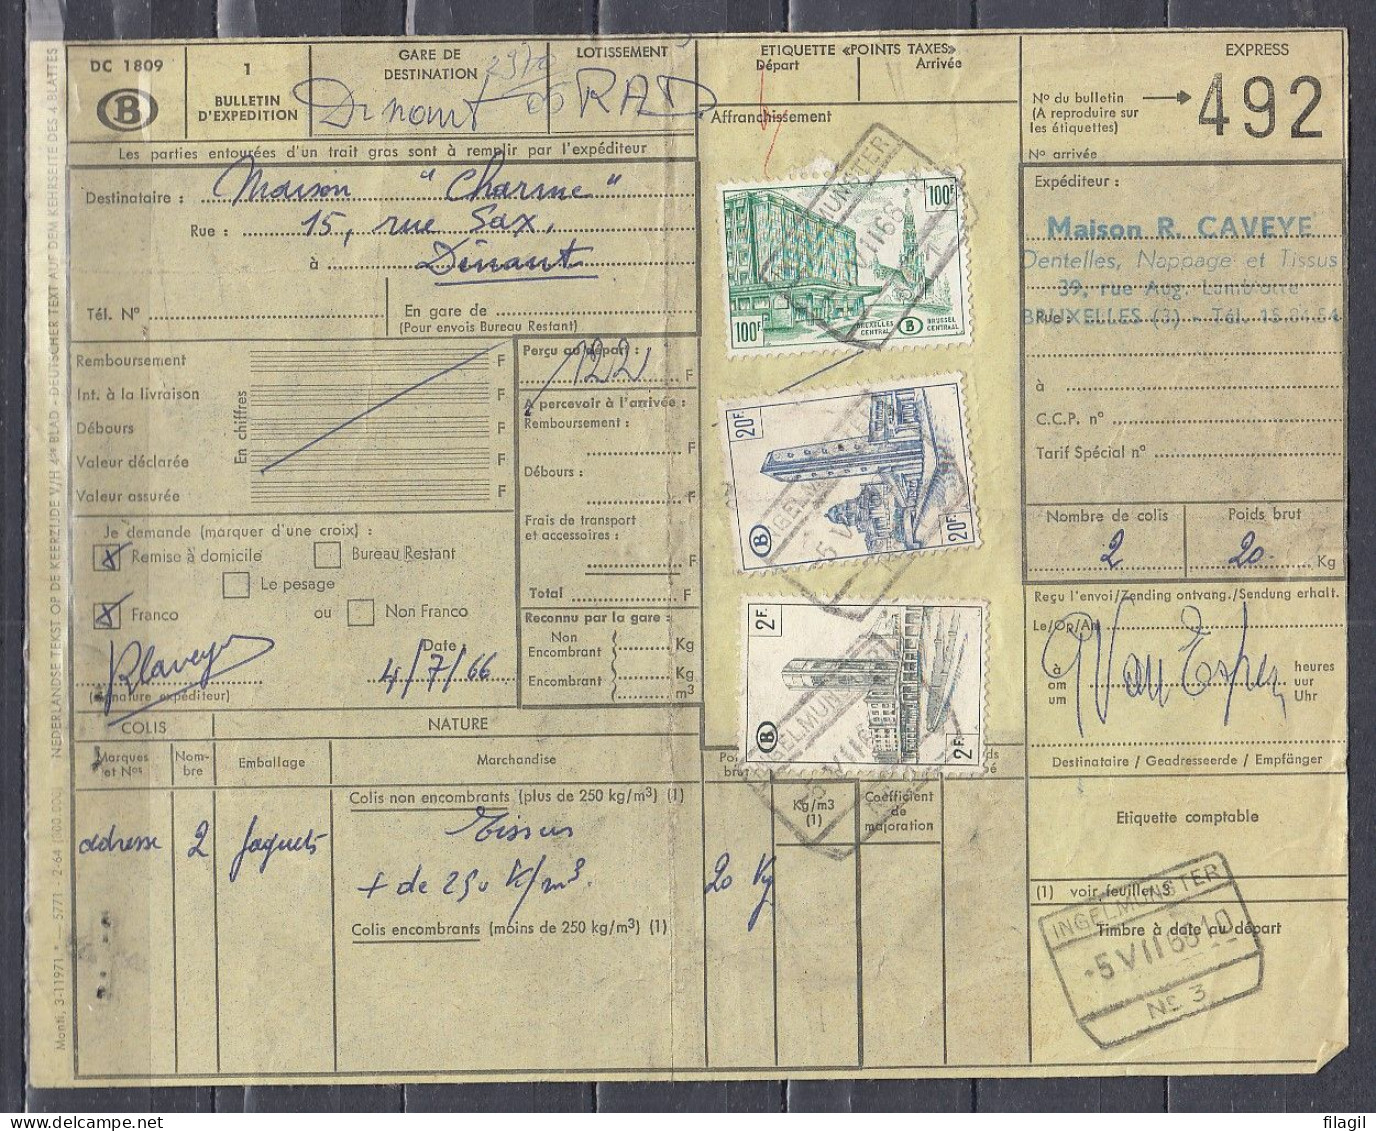 DC 1809
B
1
BULLETIN
D'EXPEDITION
GARE DE
DESTINATION
2970
Dinant
LOTISSEMENT
RAD.
ETIQUETTE «POINTS TAXES»
Départ
Arrivée
Affranchissement
EXPRESS
Nº du bulletin
(A reproduire sur
les étiquettes)
492
Nº arrivée
Les parties entourées d'un trait gras sont à remplir par l'expéditeur
Destinataire : Maison "Charme"
Rue : 15, rue Sax,
à Dinant
Tél. Nº
En gare de
(Pour envois Bureau Restant)
Expéditeur :
Maison R. CAVEYE
Dentelles, Nappage et Tissus
39, rue Aug. Lambiotte
Rue :
BRUXELLES (3) - Tél. 15.04.54
à
C.C.P. nº
Tarif Spécial nº
Nombre de colis
Poids brut
2
20
Kg
Remboursement
Int. à la livraison
Débours
Valeur déclarée
Valeur assurée
En chiffres
F
F
F
F
F
Perçu au départ :
122
F
A percevoir à l'arrivée :
Remboursement :
F
Débours :
F
Frais de transport
et accessoires :
F
Total
F
Je demande (marquer d'une croix) :
x Remise à domicile
Bureau Restant
Le pesage
x Franco
ou
Non Franco
RCaveye
(signature expéditeur)
Date :
4/7/66
Reconnu par la gare :
Non
Encombrant
Kg
Encombrant
Kg
m3
100F
100F
BRUXELLES
CENTRAL
B
BRUSSEL
CENTRAAL
20F.
B
20F.
2F.
B
2F.
INGELMUNSTER
INGELMUNSTER
INGELMUNSTER
Reçu l'envoi/Zending ontvang./Sendung erhalt.
Le/Op/Am
à
om
um
heures
uur
Uhr
Destinataire / Geadresseerde / Empfänger
Etiquette comptable
(1) voir feuille 3
Timbre à date au départ
INGELMUNSTER
-5 VII 66 10
Nº 3
COLIS
NATURE
Marques
et Nos
Nom-
bre
Emballage
Marchandise
Kg/m3
(1)
Coefficient
de
majoration
Colis non encombrants (plus de 250 kg/m3) (1)
adresse
2
paquets
Tissus
+ de 250 K/m3.
20 Kg
Colis encombrants (moins de 250 kg/m3) (1)
Monti, 3-11971.* — 5771 - 2-64
NEDERLANDSE TEKST OP DE KEERZIJDE V/H 4e BLAD - DEUTSCHER TEXT AUF DEM KEHRSEITE DES 4 BLATTES
filagil